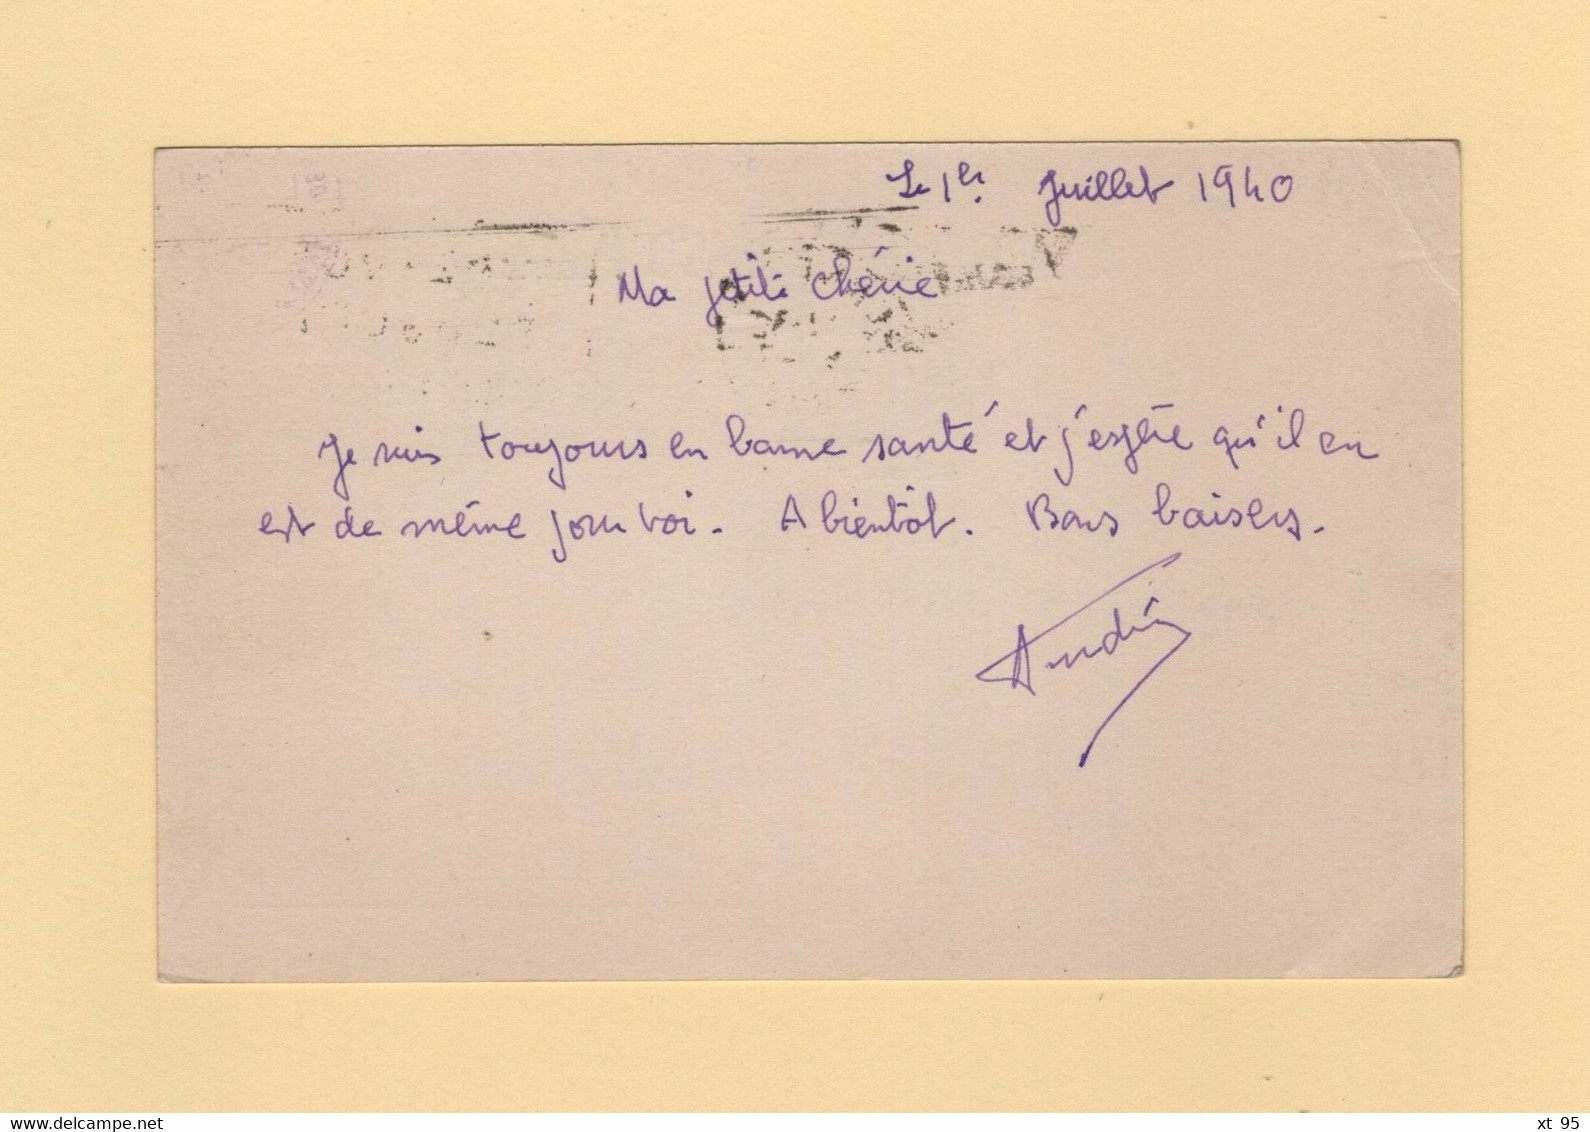 Le 1er Juillet 1940
Ma petite chérie
Je suis toujours en bonne santé et j'espère qu'il en
est de même pour toi. A bientôt. Bons baisers.
André
delcampe.net
xt 95